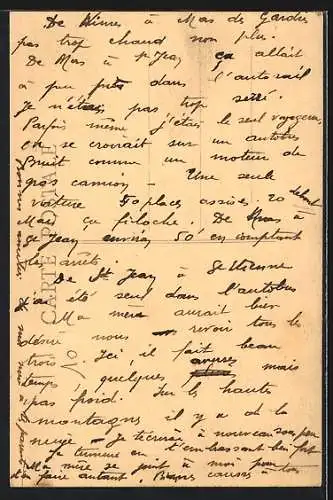 De Nîmes à Mas des Gardies
pas trop chaud non plus.
De Mas à St Jean ça allait
à peu près dans l'autorail
Je n'étais pas trop serré.
Parfois même j'étais le seul voyageur,
on se croirait sur un autobus
Bruit comme un moteur de
gros camion. Une seule
voiture 50 places assises, 20 debout
Mais ça filoche. De Mas à
St Jean environ 50' en comptant
les arrêts.
De St Jean à St Etienne
J'ai été seul dans l'autobus
Ma mère aurait bien
désiré nous revoir tous les
trois. Ici, il fait beau
temps, quelques averses mais
pas froid. Sur les hautes
montagnes il y a de la
neige. Je t'écrirai à nouveau sous peu
Je termine en t'embrassant bien fort
Ma mère se joint à moi pour
en faire autant. Bonnes causes à tous
CARTE POSTALE